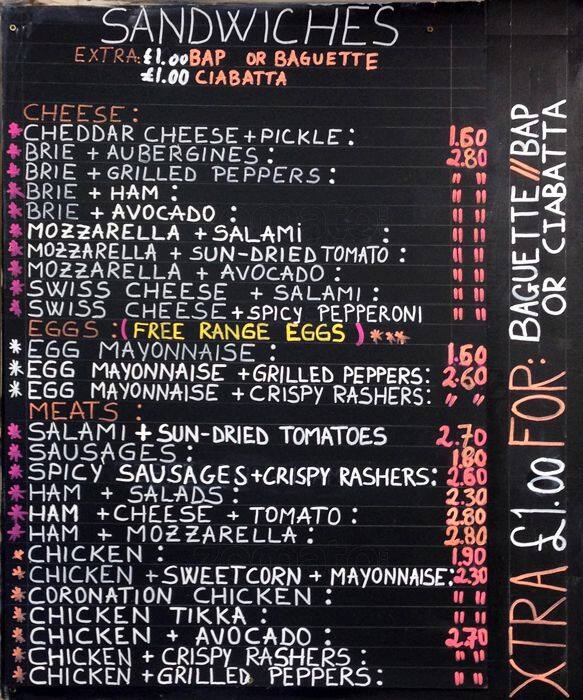 SANDWICHES
EXTRA: £1.00 BAP OR BAGUETTE
£1.00 CIABATTA
CHEESE:
* CHEDDAR CHEESE + PICKLE: 1.60
* BRIE + AUBERGINES: 2.80
* BRIE + GRILLED PEPPERS: " "
* BRIE + HAM: " "
* BRIE + AVOCADO: " "
* MOZZARELLA + SALAMI: " "
* MOZZARELLA + SUN-DRIED TOMATO: " "
* MOZZARELLA + AVOCADO: " "
* SWISS CHEESE + SALAMI: " "
* SWISS CHEESE + SPICY PEPPERONI " "
EGGS: (FREE RANGE EGGS) ***
* EGG MAYONNAISE: 1.60
* EGG MAYONNAISE + GRILLED PEPPERS: 2.60
* EGG MAYONNAISE + CRISPY RASHERS: " "
MEATS:
* SALAMI + SUN-DRIED TOMATOES 2.70
* SAUSAGES: 1.80
* SPICY SAUSAGES + CRISPY RASHERS: 2.60
* HAM + SALADS: 2.30
* HAM + CHEESE + TOMATO: 2.80
* HAM + MOZZARELLA: 2.80
* CHICKEN: 1.90
* CHICKEN + SWEETCORN + MAYONNAISE: 2.30
* CORONATION CHICKEN: " "
* CHICKEN TIKKA: " "
* CHICKEN + AVOCADO: 2.70
* CHICKEN + CRISPY RASHERS: " "
* CHICKEN + GRILLED PEPPERS: " "
XTRA £1.00 FOR: BAGUETTE//BAP
OR CIABATTA